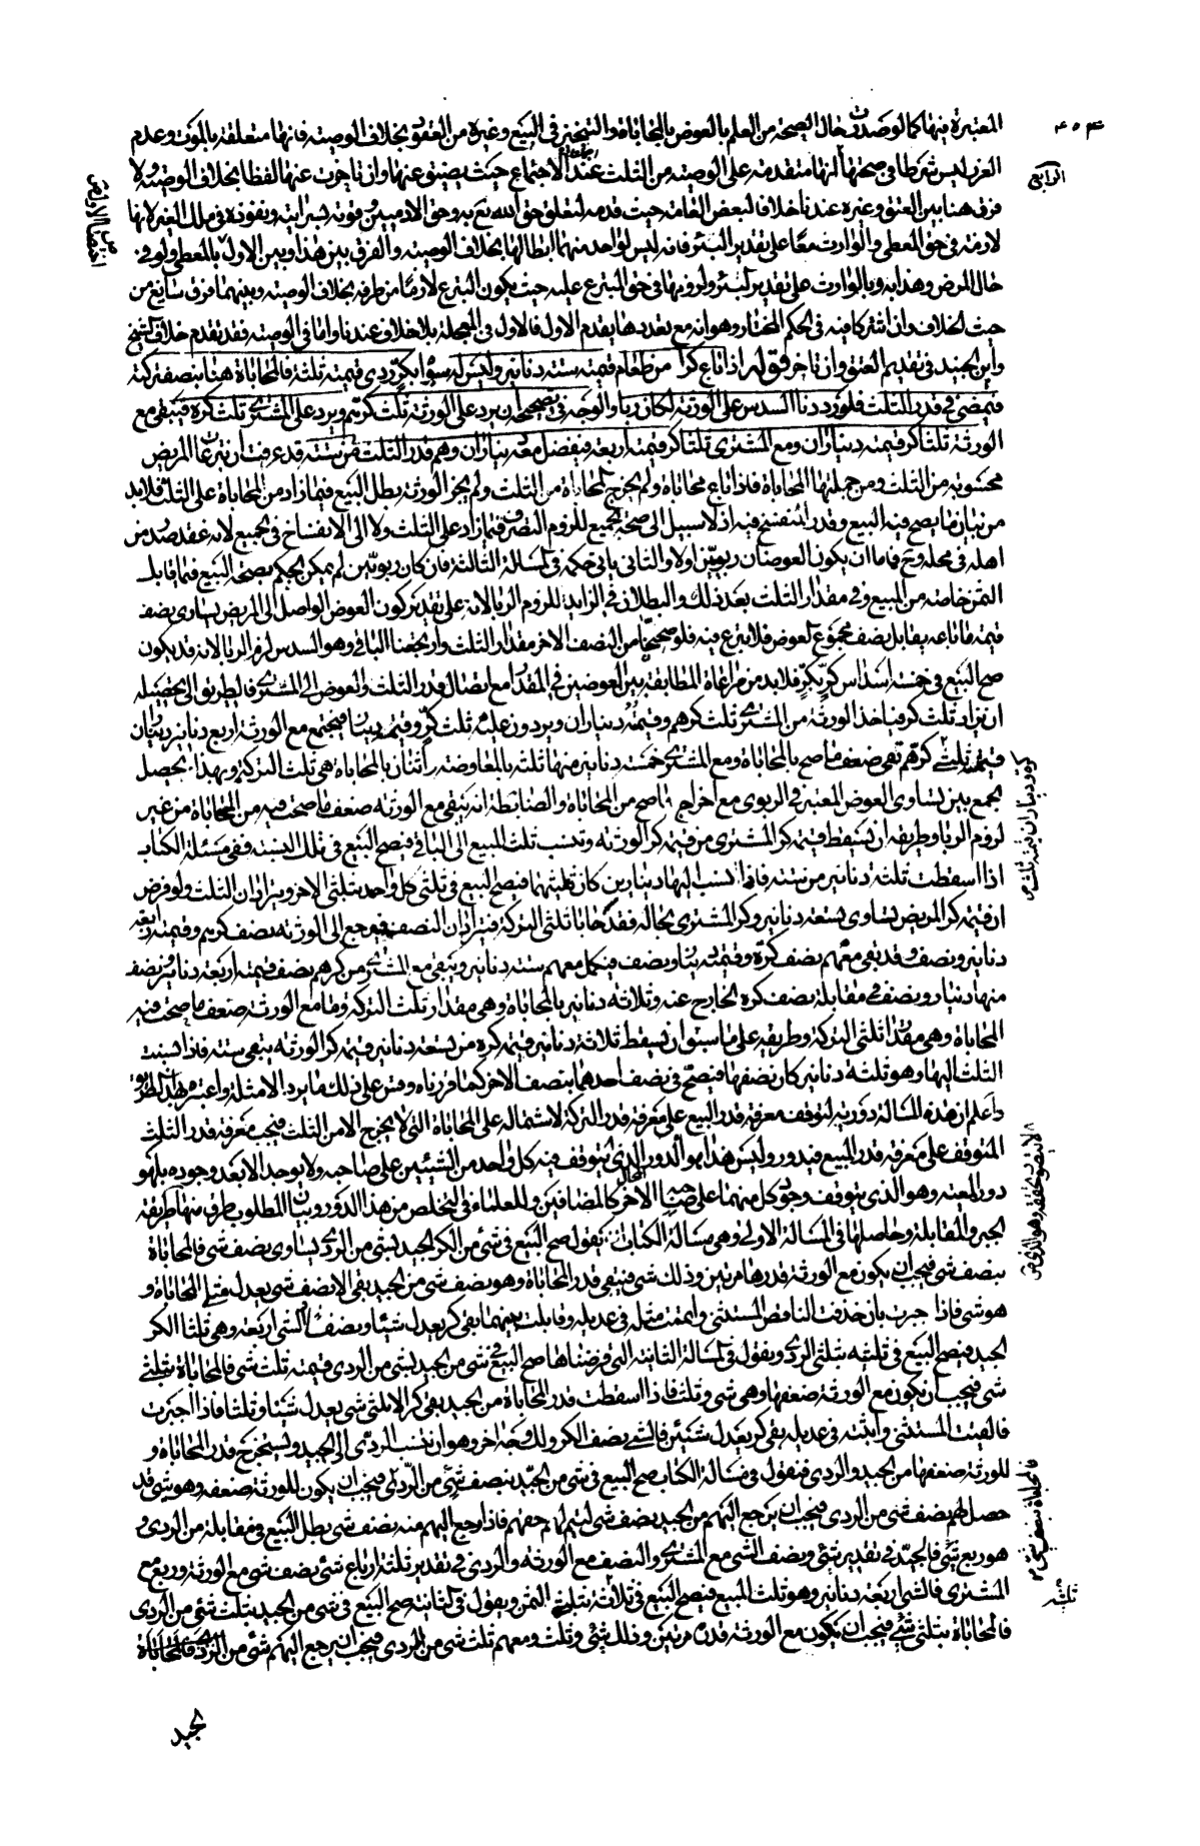 المعتبرة فيها كما لو صدرت في حال الصحة من العلم بالعوض بالمحاباة والتنجيز في البيع وغيره من العقود بخلاف الوصية فانها متعلقة بالموت وعدم
الغرر ليس شرطا في صحتها انها متقدمة على الوصية من الثلث عند الاجتماع حيث يضيق عنها وان تاخرت عنها لفظا بخلاف الوصية ولا
فرق هنا بين العتق وغيره عندنا خلافا لبعض العامة حيث قدمه لتعلق حق الله تع به وحق الادميين وقوته بسرايته ونفوذه في ملك الغير لانها
لازمة في حق المعطي والوارث معا على تقدير البرء فانه ليس لواحد منهما ابطالها بخلاف الوصية والفرق بين هذا وبين الاول بالمعطي ولو في
حال المرض وهذا به وبالوارث على تقدير البرء ولزومها في حق المتبرع عليه حيث يكون التبرع لازما من طرفه بخلاف الوصية وبينهما فرق سايغ من
حيث الخلاف وان اشتركا فيه في الحكم المختار وهو انه مع تعددها يقدم الاول فالاول في المنجزة بلا خلاف عندنا واما في الوصية فقد تقدم خلاف الشيخ
وابن الجنيد في تقديم العتق وان تاخر قوله اذا باع كرا من طعام قيمته ستة دنانير وليس له سواه بكر ردي قيمته ثلثة فالمحاباة هنا بنصف تركته
فيمضي في قدر الثلث فلو رددنا السدس على الورثة لكان ربا والوجه في تصحيحه ان يرد على الورثة ثلث كرهم ويرد على المشتري ثلث كره فيبقى مع
الورثة ثلثا كر قيمته ديناران ومع المشتري ثلثا كر قيمته اربعة فيفضل معه ديناران وهو قدر الثلث من ستة قد عرفت ان تبرعات المريض
محسوبة من الثلث ومن جملتها المحاباة فاذا باع محاباة ولم يخرج المحاباة من الثلث ولم يجز الورثة بطل البيع فيما زاد من المحاباة على الثلث فلا بد
من بيان ما يصح فيه البيع وقدر المنفسخ فيه اذ لا سبيل الى صحة الجميع للزوم التصرف فيما زاد على الثلث ولا الى الانفساخ في الجميع لانه عقد صدر من
اهله في محله وح فاما ان يكون العوضان ربويين اولا والثاني ياتي حكمه في المسالة الثالثة فان كان ربويين لم يمكن الحكم بصحة البيع فيما قابل
الثمن خاصة من المبيع وفي مقدار الثلث بعد ذلك والبطلان في الزايد للزوم الربا لانه على تقدير كون العوض الواصل الى المريض يساوي نصف
قيمة ما باعه يقابل نصف مجموع العوض فلا تبرع فيه فلو صححنا من النصف الاخر مقدار الثلث وارجعنا الباقي وهو السدس لزم الربا لانه قد يكون
صح البيع في خمسة اسداس كر بكر فلا بد من مراعاة المطابقة بين العوضين في المقدار مع ايصال قدر الثلث والعوض الى المشتري فالطريق الى تحصيله
ان يزاد ثلث كر فياخذ الورثة من المشتري ثلث كرهم وقيمته ديناران ويردون عليه ثلث كره وقيمته دينار فيجتمع مع الورثة اربع دنانير ديناران
قيمة ثلثي كرهم هي ضعف ما صح بالمحاباة ومع المشتري خمسة دنانير منها ثلثة بالمعاوضة واثنان بالمحاباة هي ثلث التركة وبهذا يحصل
الجمع بين تساوي العوض المعتبر في الربوي مع اخراج ما صح من المحاباة والضابطة انه يبقى مع الورثة ضعف ما صحت فيه من المحاباة من غير
لزوم الربا وطريقه ان تسقط قيمة كر المشتري من قيمة كر الورثة وتنسب ثلث المبيع الى الباقي فيصح البيع في تلك النسبة ففي مسئلة الكتاب
اذا اسقطت ثلثة دنانير من ستة فاذا نسبت اليها دينارين كان ثلثيها فيصح البيع في ثلثي كل واحد بثلثي الاخر ويترادان الثلث ولو فرض
ان قيمة كر المريض يساوي تسعة دنانير وكر المشتري بحاله فقد حابا ثلثي التركة فيترادان النصف فيرجع الى الورثة نصف كرهم وقيمته اربعة
دنانير ونصف وقد بقي معهم نصف كره وقيمته دينار ونصف فيكمل معهم ستة دنانير ويبقى مع المشتري من كرهم نصف قيمته اربعة دنانير ونصف
منها دينار ونصف في مقابلة نصف كره الخارج عنه وثلاثة دنانير بالمحاباة وهي مقدار ثلث التركة وما مع الورثة ضعف ما صحت فيه
المحاباة وهي مقدار ثلثي التركة وطريقه على ما سبق ان يسقط ثلاثة دنانير قيمة كره من تسعة دنانير قيمة كر الورثة يبقى ستة فاذا نسبت
الثلث اليها وهو ثلثة دنانير كان نصفها فيصح في نصف احدهما بنصف الاخر كما قررناه وقس على ذلك ما يرد الامثلة واعتبره بهذا الطريق
واعلم ان هذه المسالة دورية لتوقف معرفة قدر المبيع على معرفة قدر التركة لاشتماله على المحاباة التي لا يخرج الا من الثلث فيجب معرفة قدر الثلث
المتوقف على معرفة قدر المبيع فيدور وليس هذا هو الدور الذي يتوقف فيه كل واحد من الشيئين على صاحبه ولا يوجد الا بعد وجوده بل هو
دور المعية وهو الذي يتوقف وجود كل منهما على صاحبه الاخر كالمضافين وللعلماء في التخلص من هذا الدور وبيان المطلوب طرق منها طريقة
الجبر والمقابلة وحاصلها في المسالة الاولى وهي مسالة الكتاب ان يقول صح البيع في شئ من الكر الجيد بشئ من الردي يساوي نصف شئ فالمحاباة
بنصف شئ فيجب ان يكون مع الورثة قدرها مرتين وذلك شئ فيبقى قدر المحاباة وهو نصف شئ من الجيد يبقى الا نصف شئ يعدل مثلي المحاباة و
هو شئ فاذا جبرت بان حذفت الناقص المستثنى واتممت مثله في عديله وقابلت بينهما بقي كر يعدل شيئا ونصف فالشئ اربعة وهي ثلثا الكر
الجيد فيصح البيع في ثلثيه بثلثي الردي ويقول في المسالة الثانية التي فرضناها صح البيع في شئ من الجيد بشئ من الردي قيمته ثلث شئ فالمحاباة بثلثي
شئ فيجب ان يكون مع الورثة ضعفها وهي شئ وثلث فاذا اسقطت قدر المحاباة من الجيد بقي كر الا ثلثي شئ يعدل شيئا وثلثا فاذا اجبرت
فالقيت المستثنى واثبته في عديله بقي كر يعدل شيئين فالشئ نصف الكر ولك وجه اخر وهو ان تنسب الردي الى الجيد وتستخرج قدر المحاباة و
للورثة ضعفها من الجيد والردي فنقول في مسالة الكتاب صح البيع في شئ من الجيد بنصف شئ من الردي فيجب ان يكون للورثة ضعفه وهو شئ قد
حصل لهم نصف شئ من الردي فيجب ان يرجع اليهم من الجيد نصف شئ ليتم لهم حقهم فاذا رجع اليهم منه نصف شئ بطل البيع في مقابلة من الردي و
هو ربع شئ فالجيد في تقدير شئ ونصف الشئ مع المشتري والنصف مع الورثة والردي في تقدير ثلثة ارباع شئ نصف شئ مع الورثة وربع مع
المشتري فالشئ اربعة دنانير وهو ثلث المبيع فيصح البيع في ثلاثة بثلث الثمن ويقول في الثانية صح البيع في شئ من الجيد بثلث شئ من الردي
فالمحاباة بثلثي شئ فيجب ان يكون مع الورثة قدره مرتين وذلك شئ وثلث ومعهم ثلث شئ من الردي فيجب ان يرجع اليهم شئ من
الرابع
لا يتصور تحققه وهو الذي
فالمحاباة بنصف شئ
الجيد